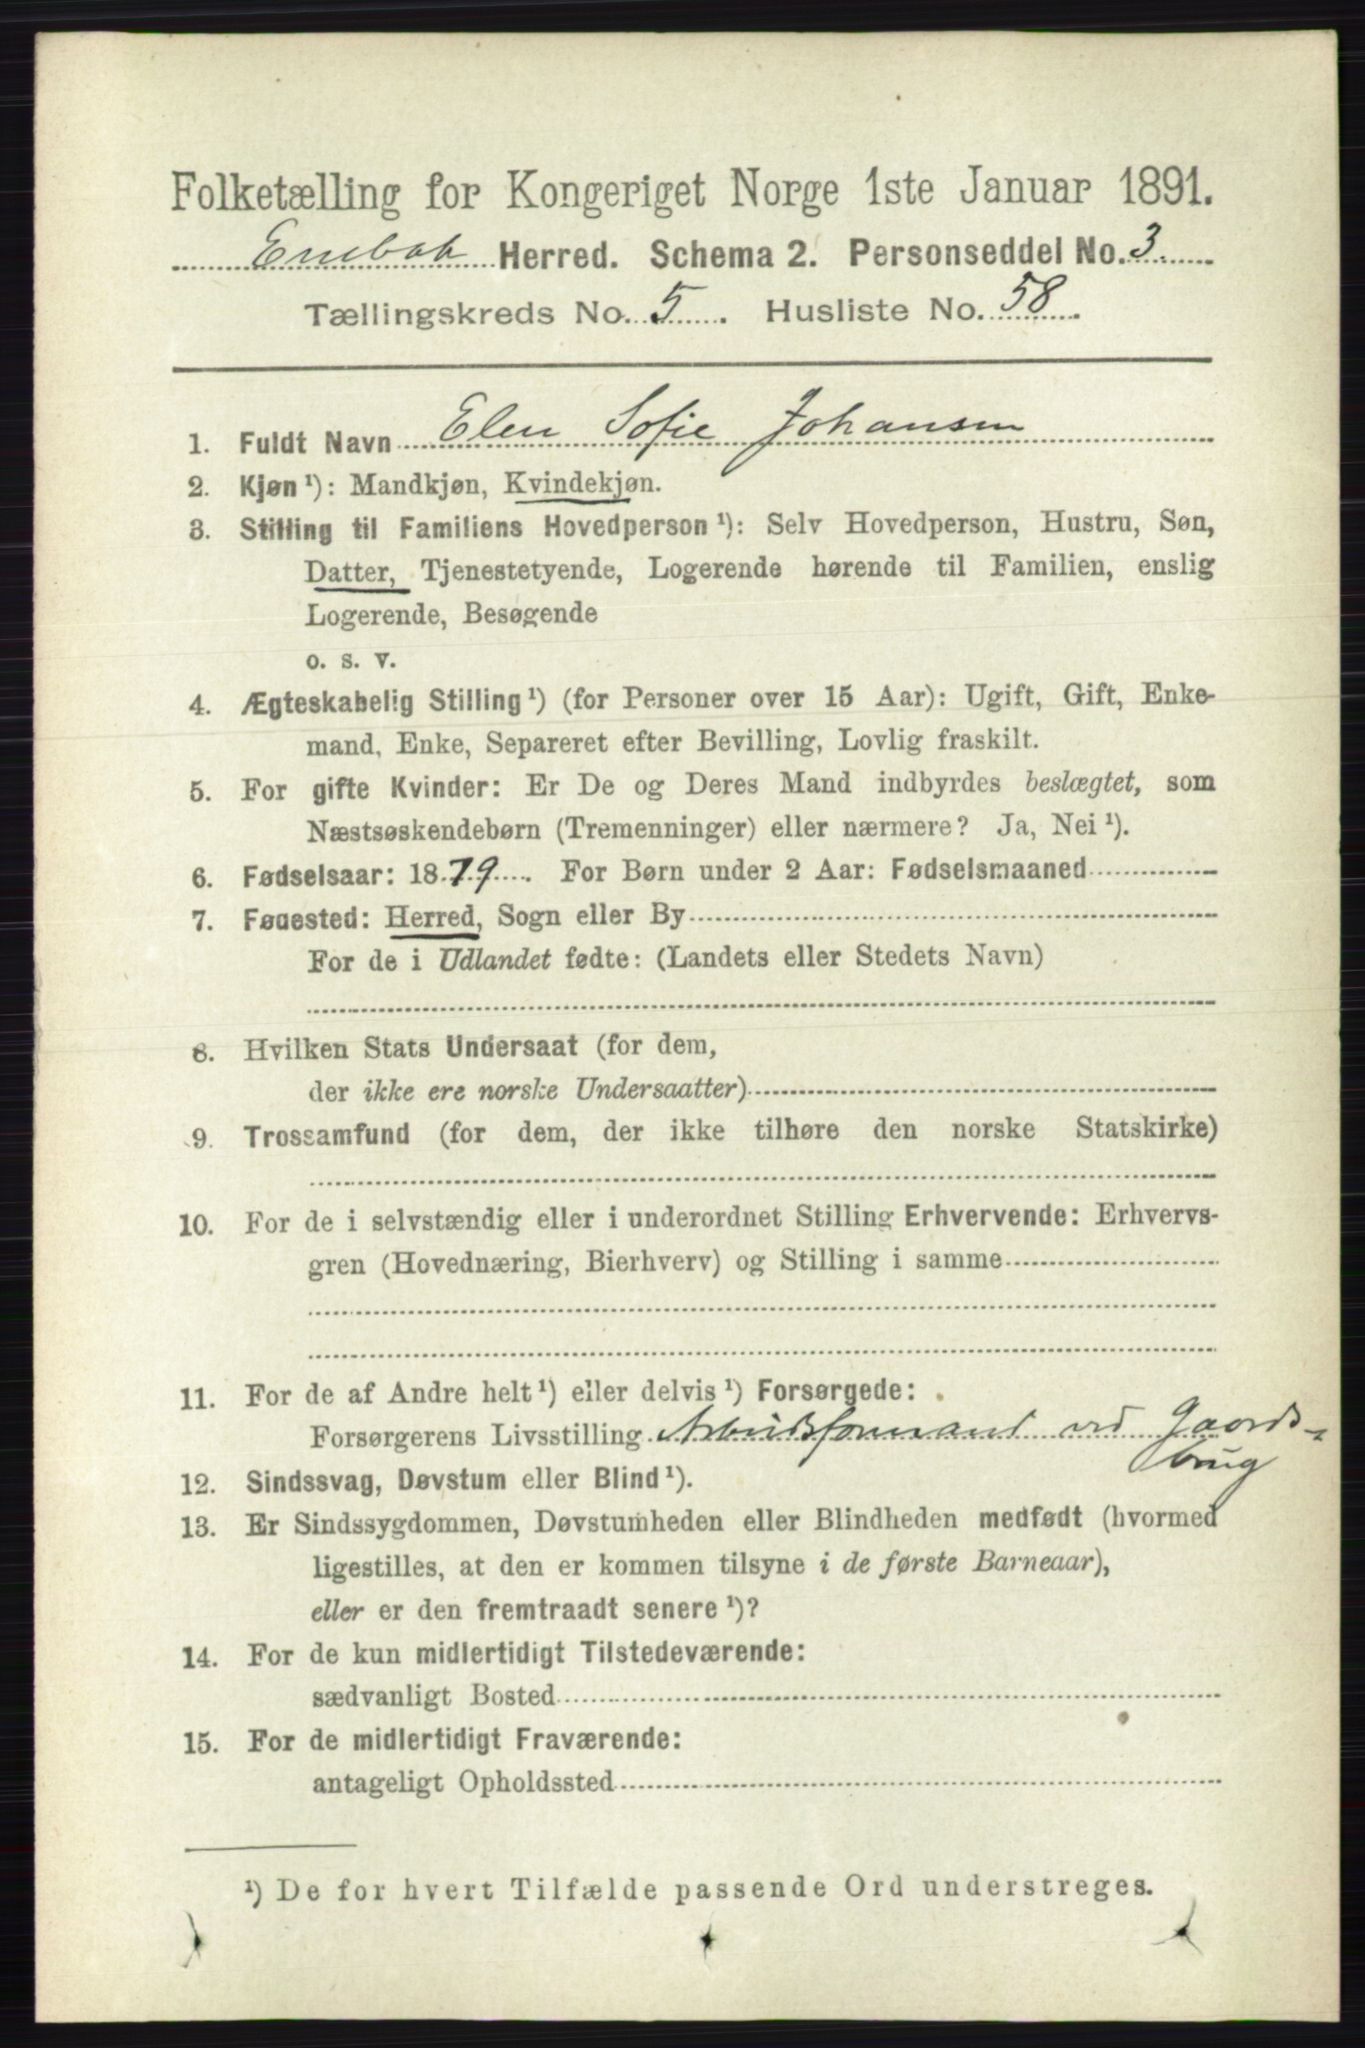 Folketælling for Kongeriget Norge 1ste Januar 1891.
Enebak Herred. Schema 2. Personseddel No. 3
Tællingskreds No. 5. Husliste No. 58.
1. Fuldt Navn Elen Sofie Johansen
2. Kjøn ¹): Mandkjøn, Kvindekjøn.
3. Stilling til Familiens Hovedperson ¹): Selv Hovedperson, Hustru, Søn,
Datter, Tjenestetyende, Logerende hørende til Familien, enslig
Logerende, Besøgende
o. s. v.
4. Ægteskabelig Stilling ¹) (for Personer over 15 Aar): Ugift, Gift, Enke-
mand, Enke, Separeret efter Bevilling, Lovlig fraskilt.
5. For gifte Kvinder: Er De og Deres Mand indbyrdes beslægtet, som
Næstsøskendebørn (Tremenninger) eller nærmere? Ja, Nei ¹).
6. Fødselsaar: 1879. For Børn under 2 Aar: Fødselsmaaned
7. Fødested: Herred, Sogn eller By
For de i Udlandet fødte: (Landets eller Stedets Navn)
8. Hvilken Stats Undersaat (for dem,
der ikke ere norske Undersaatter)
9. Trossamfund (for dem, der ikke tilhøre den norske Statskirke)
10. For de i selvstændig eller i underordnet Stilling Erhvervende: Erhvervs-
gren (Hovednæring, Bierhverv) og Stilling i samme
11. For de af Andre helt ¹) eller delvis ¹) Forsørgede:
Forsørgerens Livsstilling Arbeidsformand ved Gaards-
brug
12. Sindssvag, Døvstum eller Blind ¹).
13. Er Sindssygdommen, Døvstumheden eller Blindheden medfødt (hvormed
ligestilles, at den er kommen tilsyne i de første Barneaar),
eller er den fremtraadt senere ¹)?
14. For de kun midlertidigt Tilstedeværende:
sædvanligt Bosted
15. For de midlertidigt Fraværende:
antageligt Opholdssted
¹) De for hvert Tilfælde passende Ord understreges.